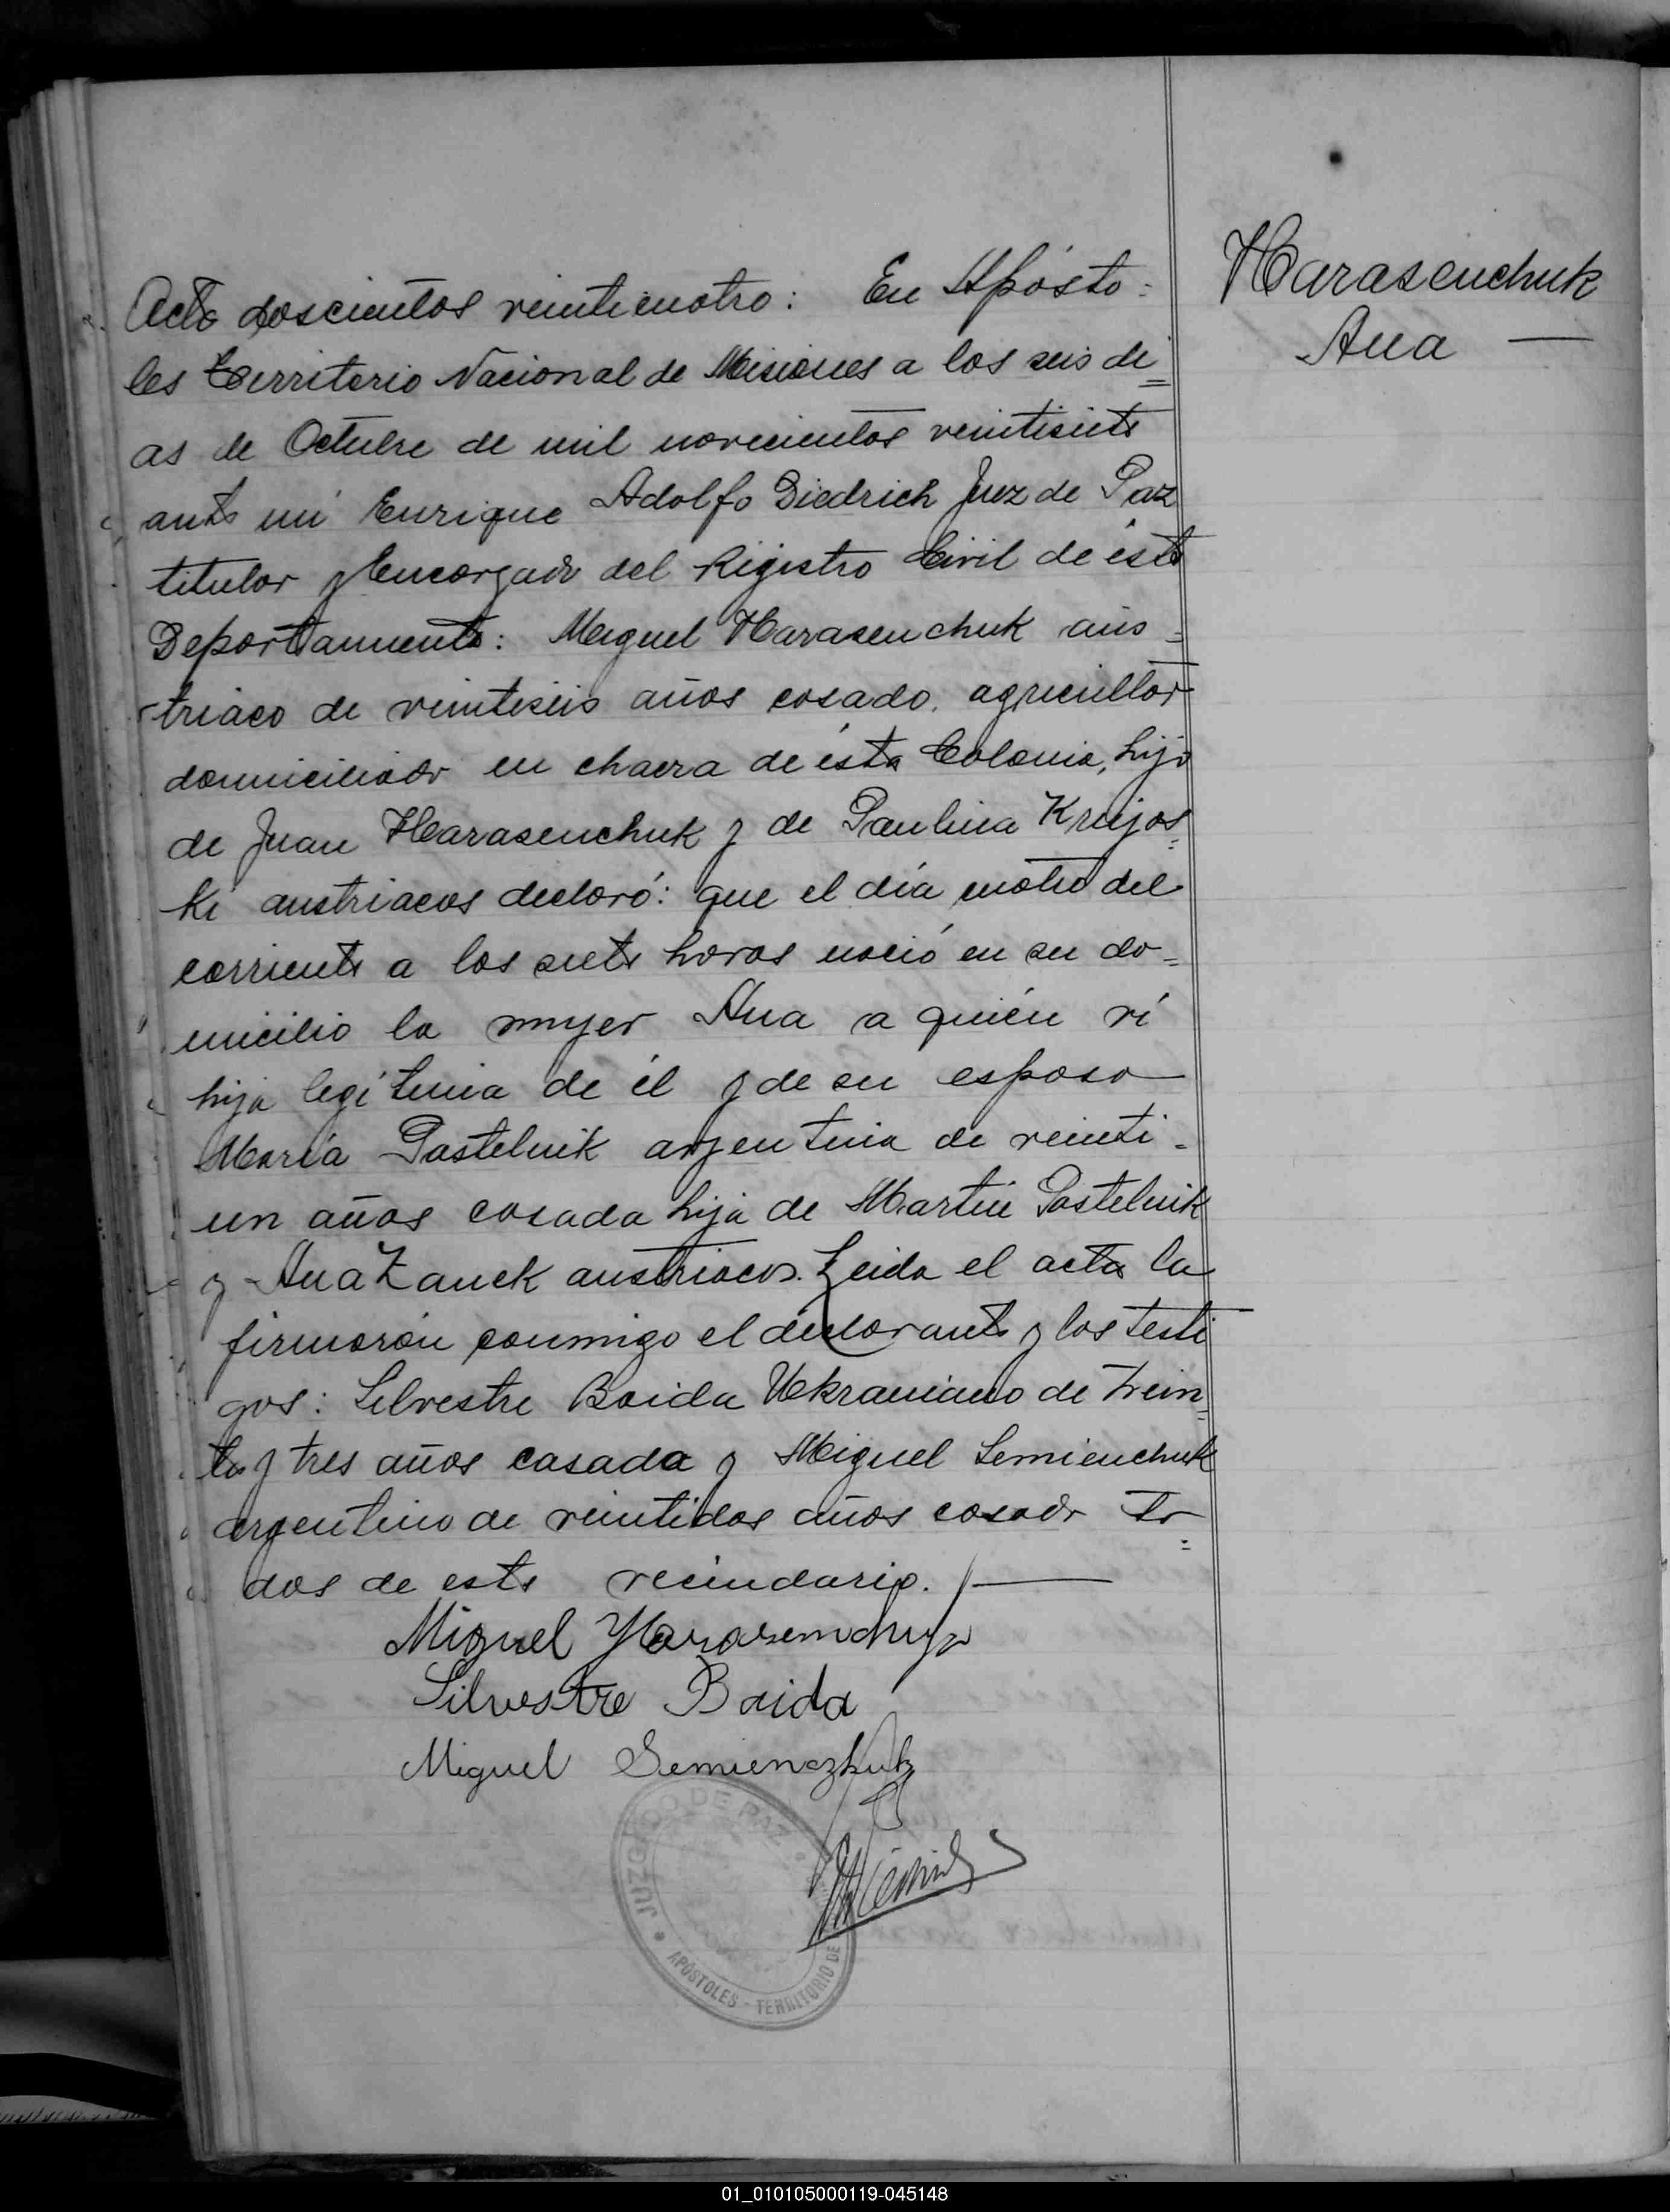 Harasenchuk
Ana —
Acta doscientos veinticuatro: En Apósto-
les Territorio Nacional de Misiones a los seis dí=
as de Octubre de mil novecientos veintisiete
ante mi Enrique Adolfo Diedrich Juez de Paz
titular y Encargado del Registro Civil de éste
Departamento: Miguel Harasenchuk aus=
triaco de veinteseis años casado, agricultor
domiciliado en chacra de ésta Colonia, hijo
de Juan Harasenchuk y de Paulina Krujos=
ki austriacos declaró: que el día cuatro del
corriente a las siete horas nació en su do=
micilio la mujer Ana a quién ví
hija legítima de él y de su esposa
María Pastelnik argentina de veinti-
un años casada hija de Martin Pastelnik
y Ana Zanek austriacos. Leida el acta la
firmarón conmigo el declarante y los testi
gos: Silvestre Baida Uekraniano de trein=
ta y tres años casada y Miguel Semienchuk
argentino de veintidos años casado to=
dos de este vecindario. —
Miguel Harasemchuja
Silvestre Baida
Miguel Semienczhuk
JUZGADO DE PAZ
APÓSTOLES - TERRITORIO DE
01_010105000119-045148